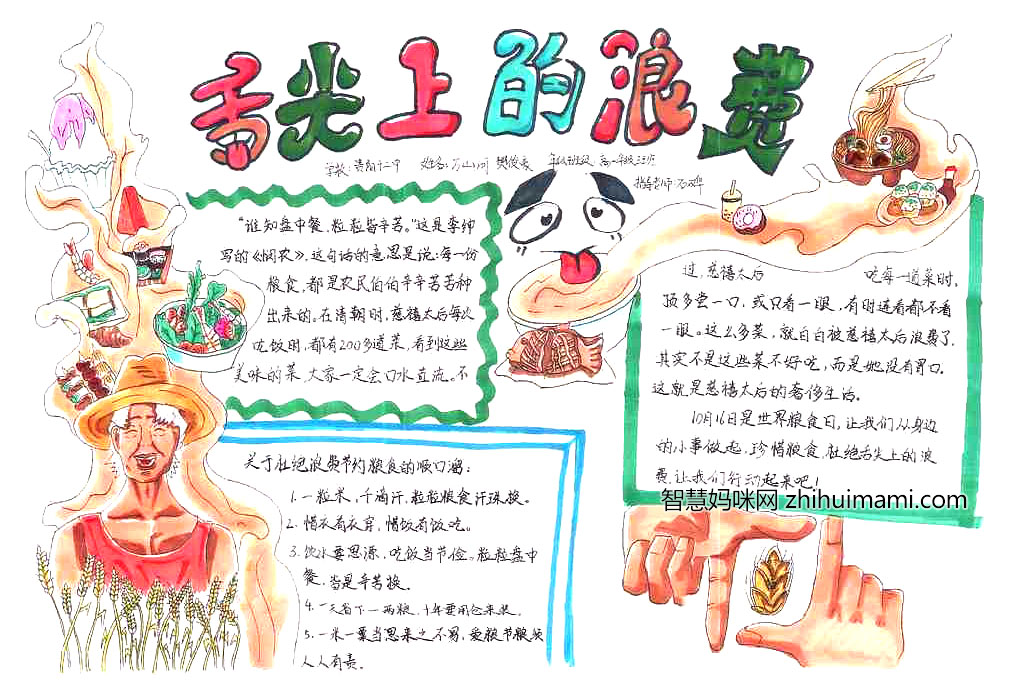 舌尖上的浪费
学校: 贵阳十二中 姓名: 年级班级
指导老师:
"谁知盘中餐,粒粒皆辛苦。"这是李绅
写的《悯农》。这句话的意思是说:每一份
粮食,都是农民伯伯辛辛苦苦种
出来的。在清朝时,慈禧太后每次
吃饭时,都有200多道菜,看到这些
美味的菜,大家一定会口水直流。不
过,慈禧太后 吃每一道菜时,
顶多尝一口,或只看一眼,有时连看都不看
一眼。这么多菜,就白白被慈禧太后浪费了.
其实不是这些菜不好吃,而是她没有胃口.
这就是慈禧太后的奢侈生活。
10月16日是世界粮食日,让我们从身边
的小事做起,珍惜粮食,杜绝舌尖上的浪
费,让我们行动起来吧!
智慧妈咪网 zhihuimami.com
关于杜绝浪费节约粮食的顺口溜:
1. 一粒米,千滴汗,粒粒粮食汗珠换。
2. 惜衣有衣穿,惜饭有饭吃。
3. 饮水要思源,吃饭当节俭。粒粒盘中
餐,当是辛苦换。
4. 一天省下一两粮,十年要用仓来装。
5. 一米一粟当思来之不易,爱粮节粮须
人人有责。